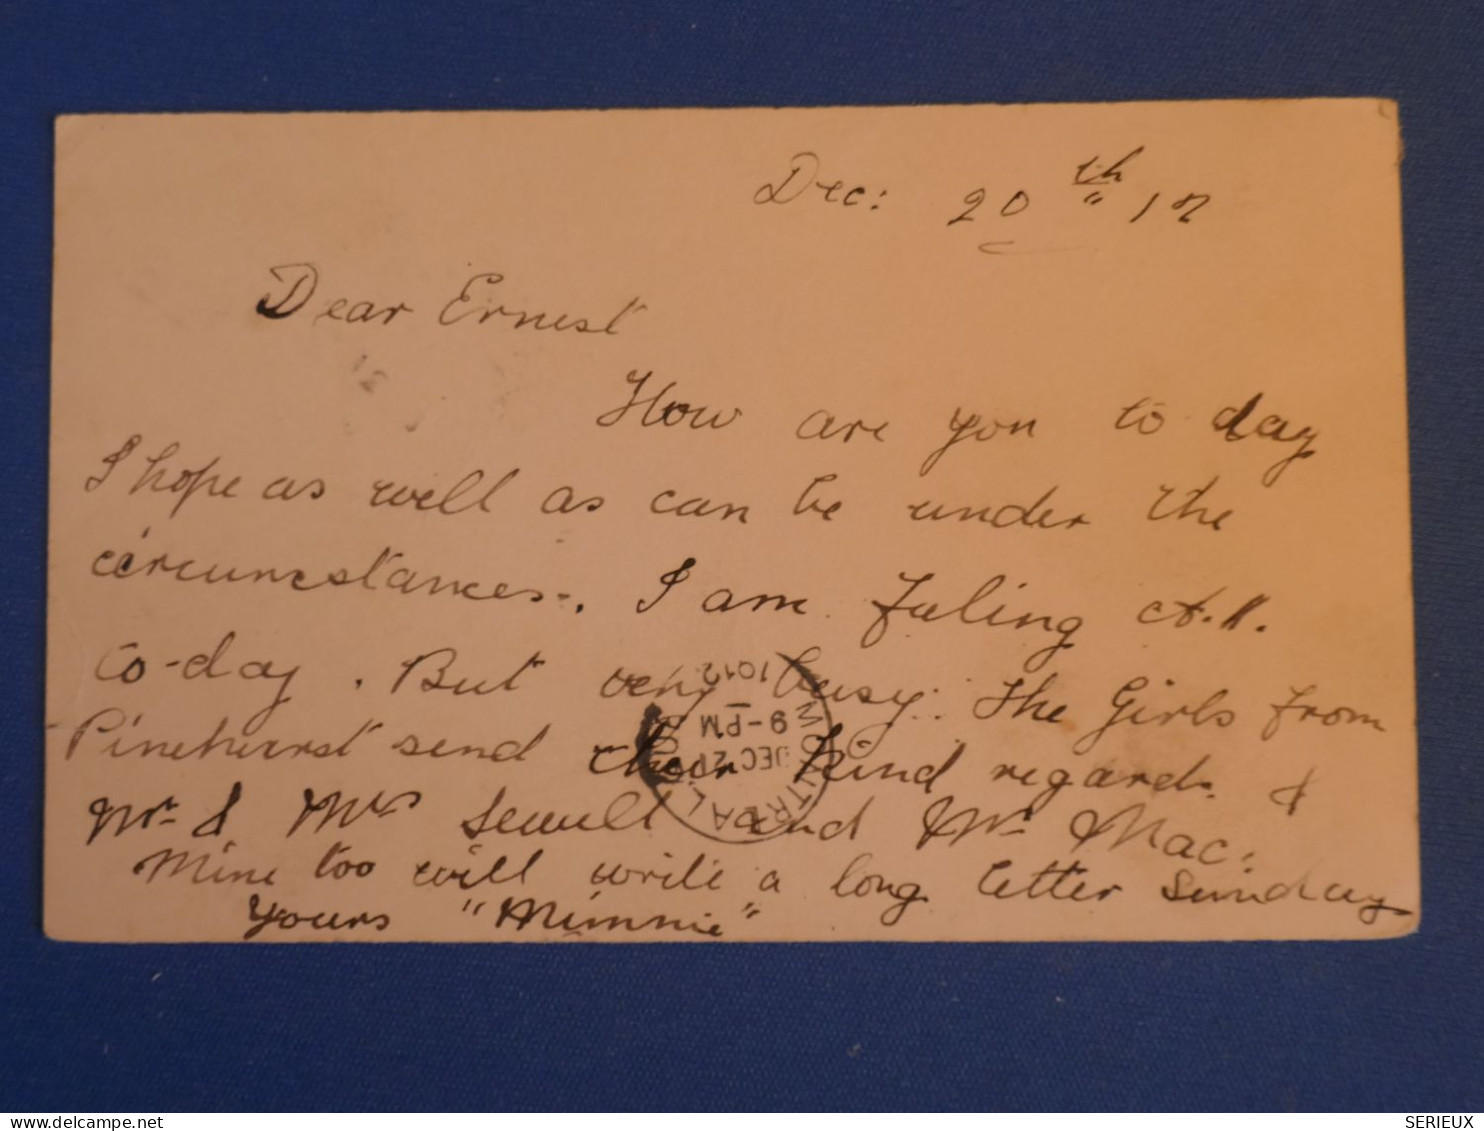 Dec: 20 th " 12
Dear Ernest
How are you to day
I hope as well as can be under the
circumstances. I am Feling A.1.
to-day. But very busy. The Girls from
Pinehurst send their kind regards. &
Mr & Mrs Sewell and Mr Mac.
Mine too will write a long letter Sunday
Yours "Minnie"
MONTREAL
DEC 21
9-PM
1912
SERIEUX
www.delcampe.net